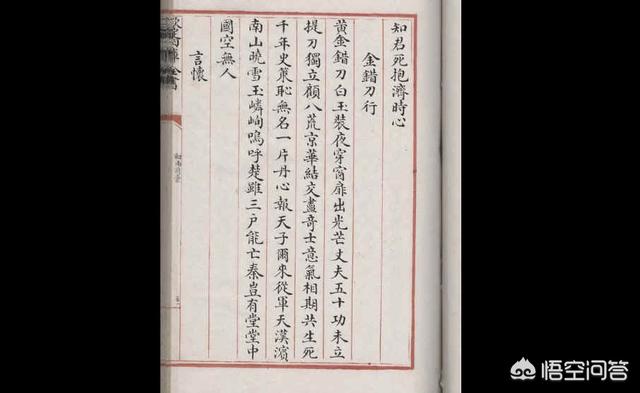 知君死抱濟時心
金錯刀行
黃金錯刀白玉裝夜穿窗扉出光芒丈夫五十功未立
提刀獨立顧八荒京華結交盡奇士意氣相期共生死
千年史策恥無名一片丹心報天子爾來從軍天漢濱
南山曉雪玉嶙峋嗚呼楚雖三戶能亡秦豈有堂堂中
國空無人
言懷
悟空问答